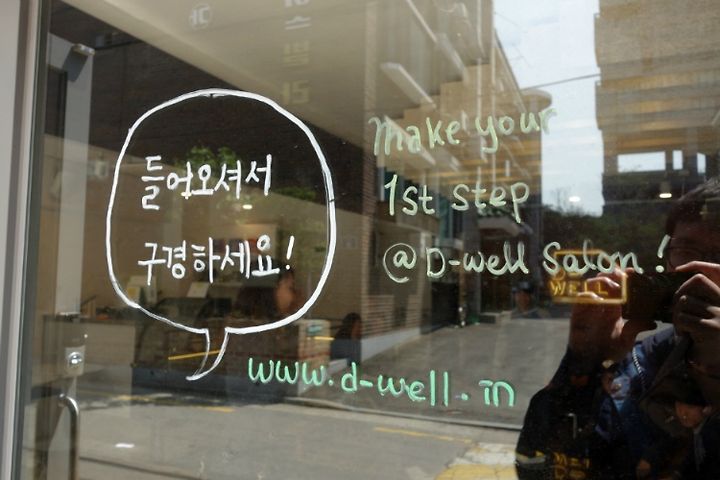 들어오셔서
구경하세요!
make your
1st step
@ D-well Salon!
WELL
www.d-well.in